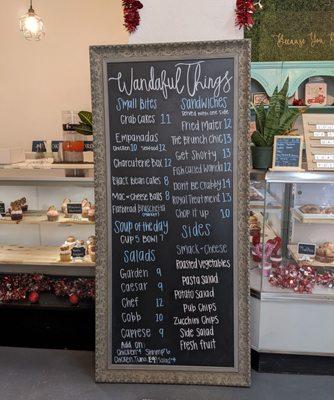 Wandaful Things
Small Bites
Crab Cakes 11
Empanadas
Chicken 10 Seafood 12
Charcuterie Box 12
Black Bean Cakes 8
Mac + Cheese Balls 8
Flatbread Bruschetta
Soup of the day
Cup 5 Bowl 7
Salads
Garden 9
Caesar 9
Chef 12
Cobb 10
Caprese 9
Add On:
Chicken 4 Shrimp 6
Chicken Tuna Egg Salad 4
Sandwiches
served with one side
Fried Mater 12
The Brunch Chic 13
Get Shorty 13
Fish Called Wanda 12
Dont Be Crabby 14
Royal Treatment 13
Chop it up 10
Sides
Smack-Cheese
Roasted Vegetables
Pasta Salad
Potato Salad
Pub Chips
Zucchini Chips
Side Salad
Fresh Fruit
Because You